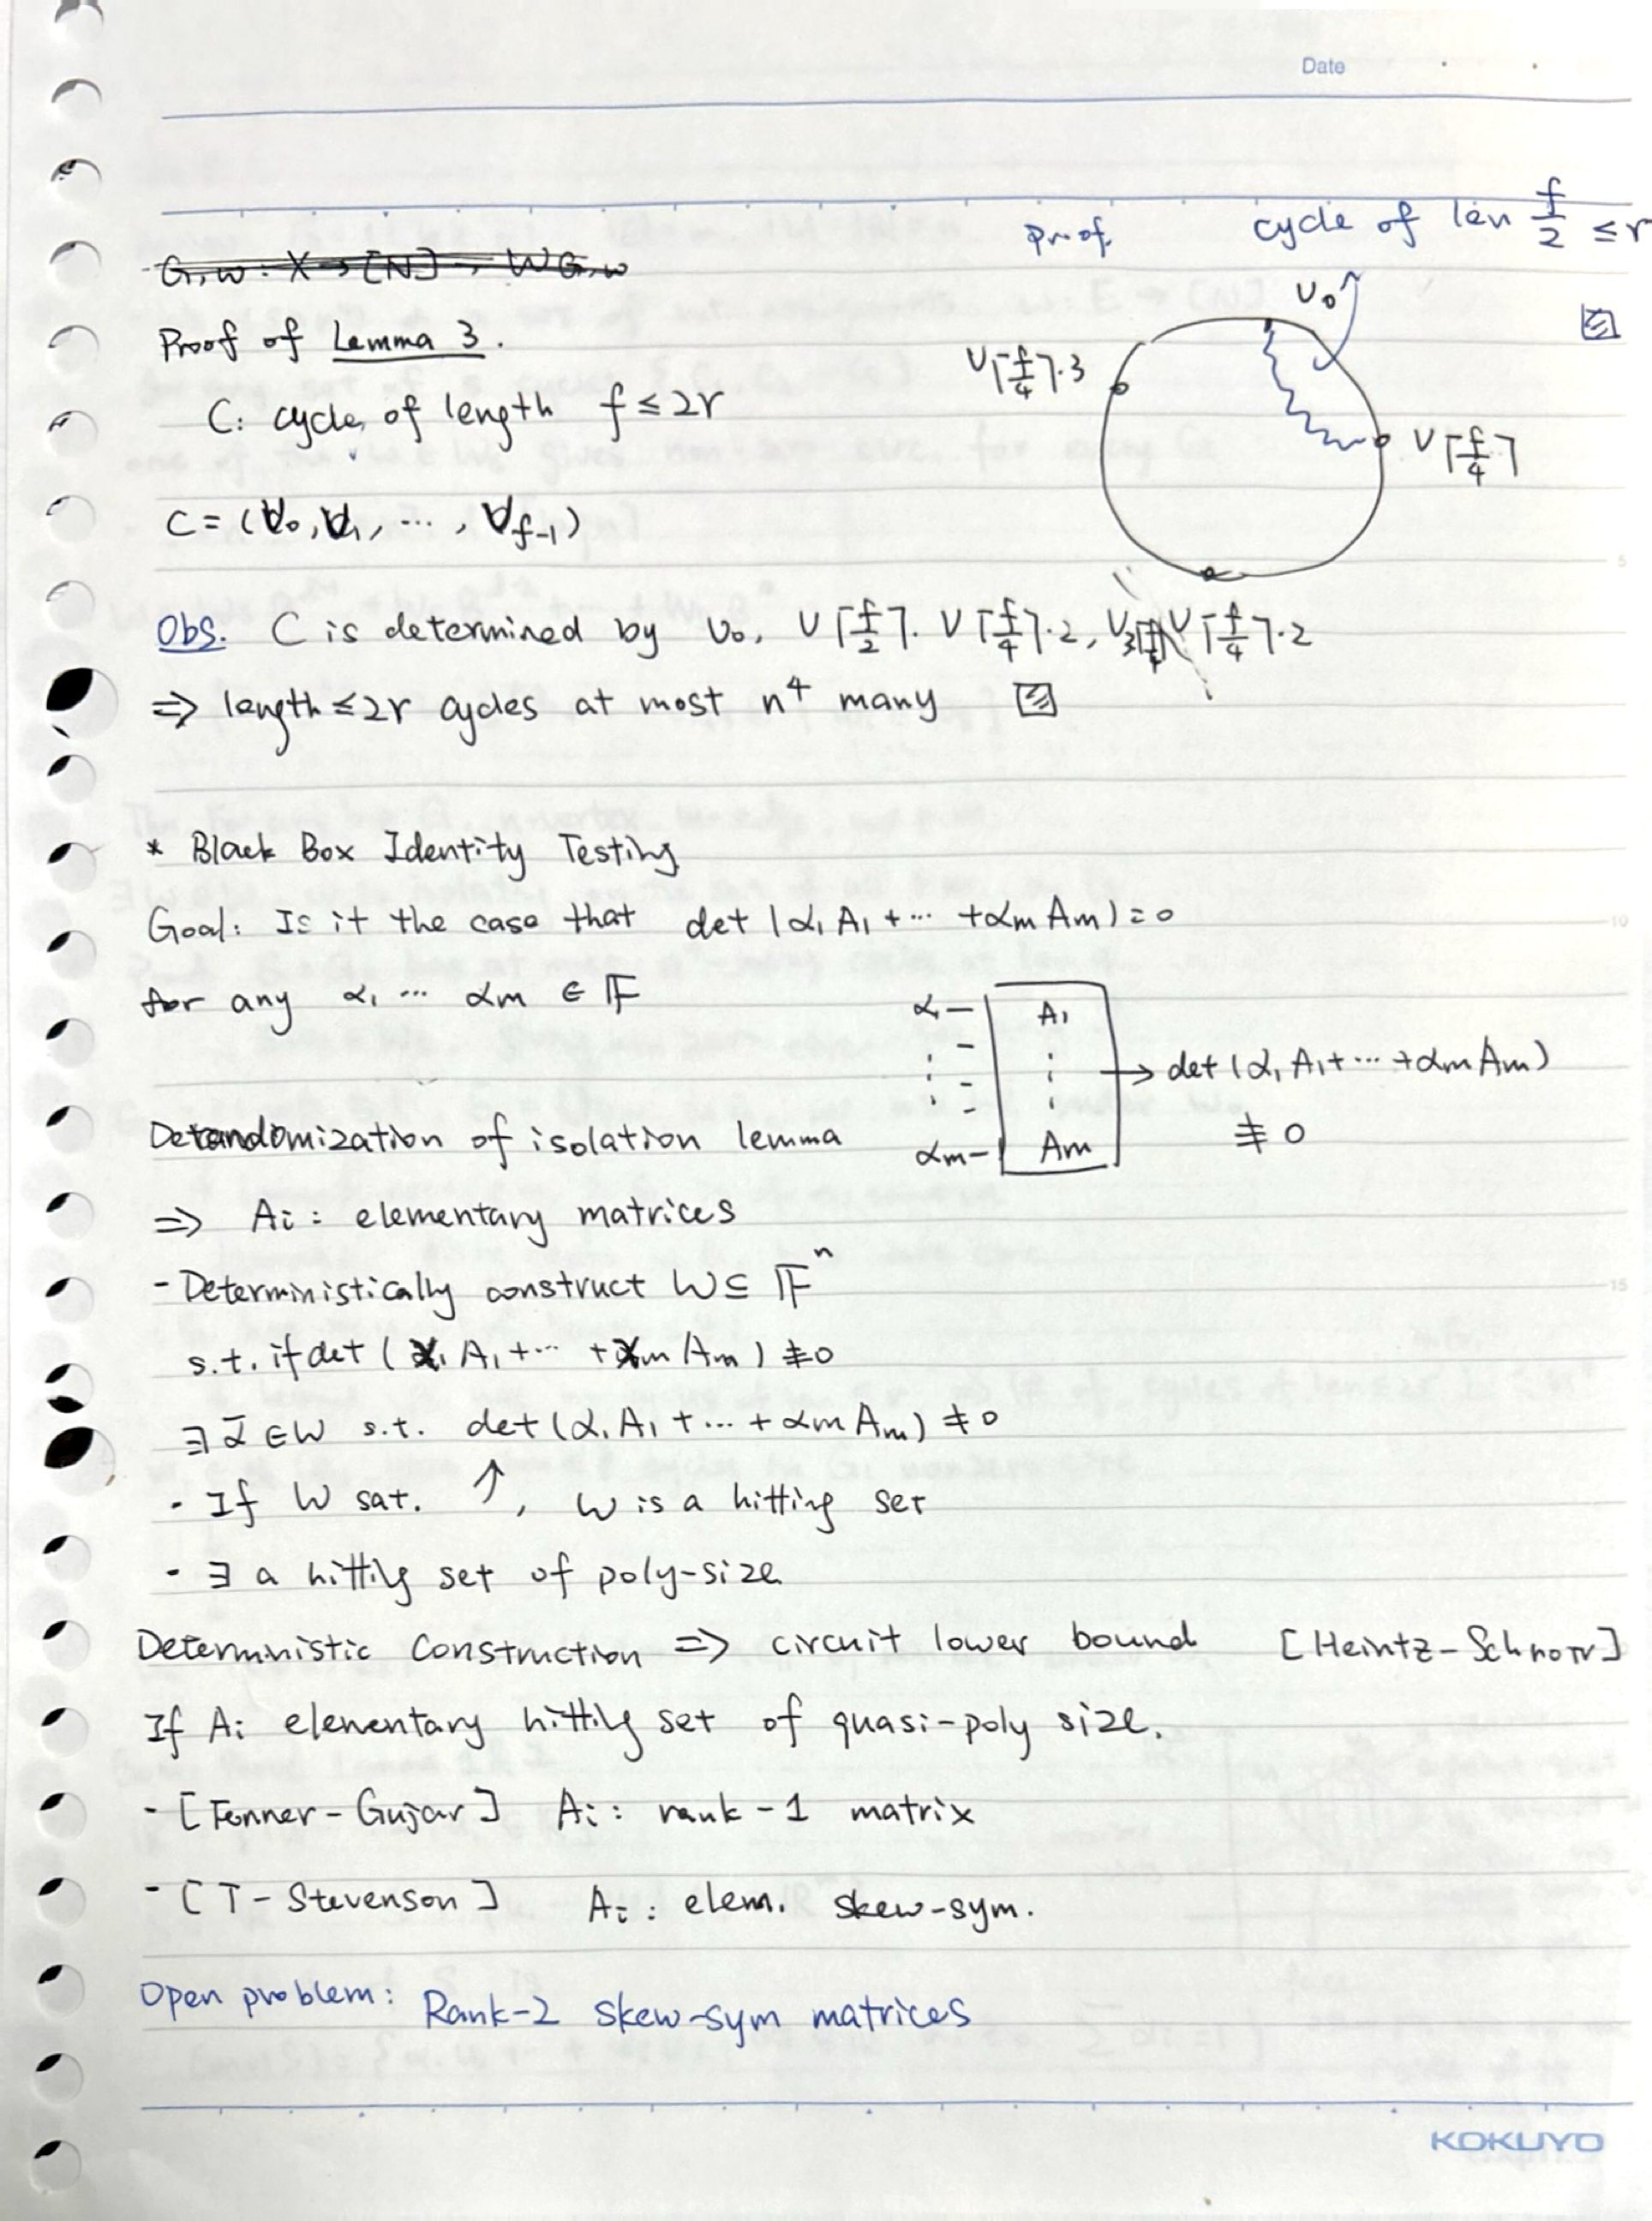 Date
G, w : X → [N] → W G, w
Proof of Lemma 3.
C: cycle of length f ≤ 2r
C = (v₀, v₁, ..., v_{f-1})
Proof. cycle of len f/2 ≤ r
v₀
v⌈f/4⌉·3
v⌈f/4⌉
Obs. C is determined by v₀, v⌈f/2⌉. v⌈f/4⌉·2, v⌈f/4⌉·2
⇒ length ≤ 2r cycles at most n⁴ many
* Black Box Identity Testing
Goal: Is it the case that det (α₁ A₁ + ... + αm Am) = 0
for any α₁ ... αm ∈ 𝔽
α₁ A₁
αm Am
→ det (α₁ A₁ + ... + αm Am)
≢ 0
Derandomization of isolation lemma
⇒ Ai : elementary matrices
- Deterministically construct W ⊆ 𝔽ⁿ
s.t. if det (x₁ A₁ + ... + xm Am) ≢ 0
∃ ᾱ ∈ W s.t. det (α₁ A₁ + ... + αm Am) ≠ 0
· If W sat. ↑, W is a hitting set
· ∃ a hitting set of poly-size
Deterministic Construction ⇒ circuit lower bound [Heintz-Schnorr]
If Ai elementary hitting set of quasi-poly size.
- [Fenner-Gujar] Ai : rank-1 matrix
- [T-Stevenson] Ai : elem. skew-sym.
Open problem: Rank-2 skew-sym matrices
KOKUYO